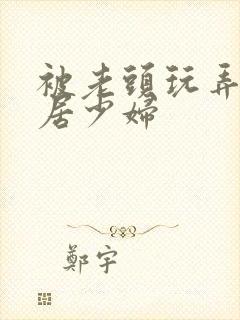 被老頭玩弄
居少婦
鄭宇